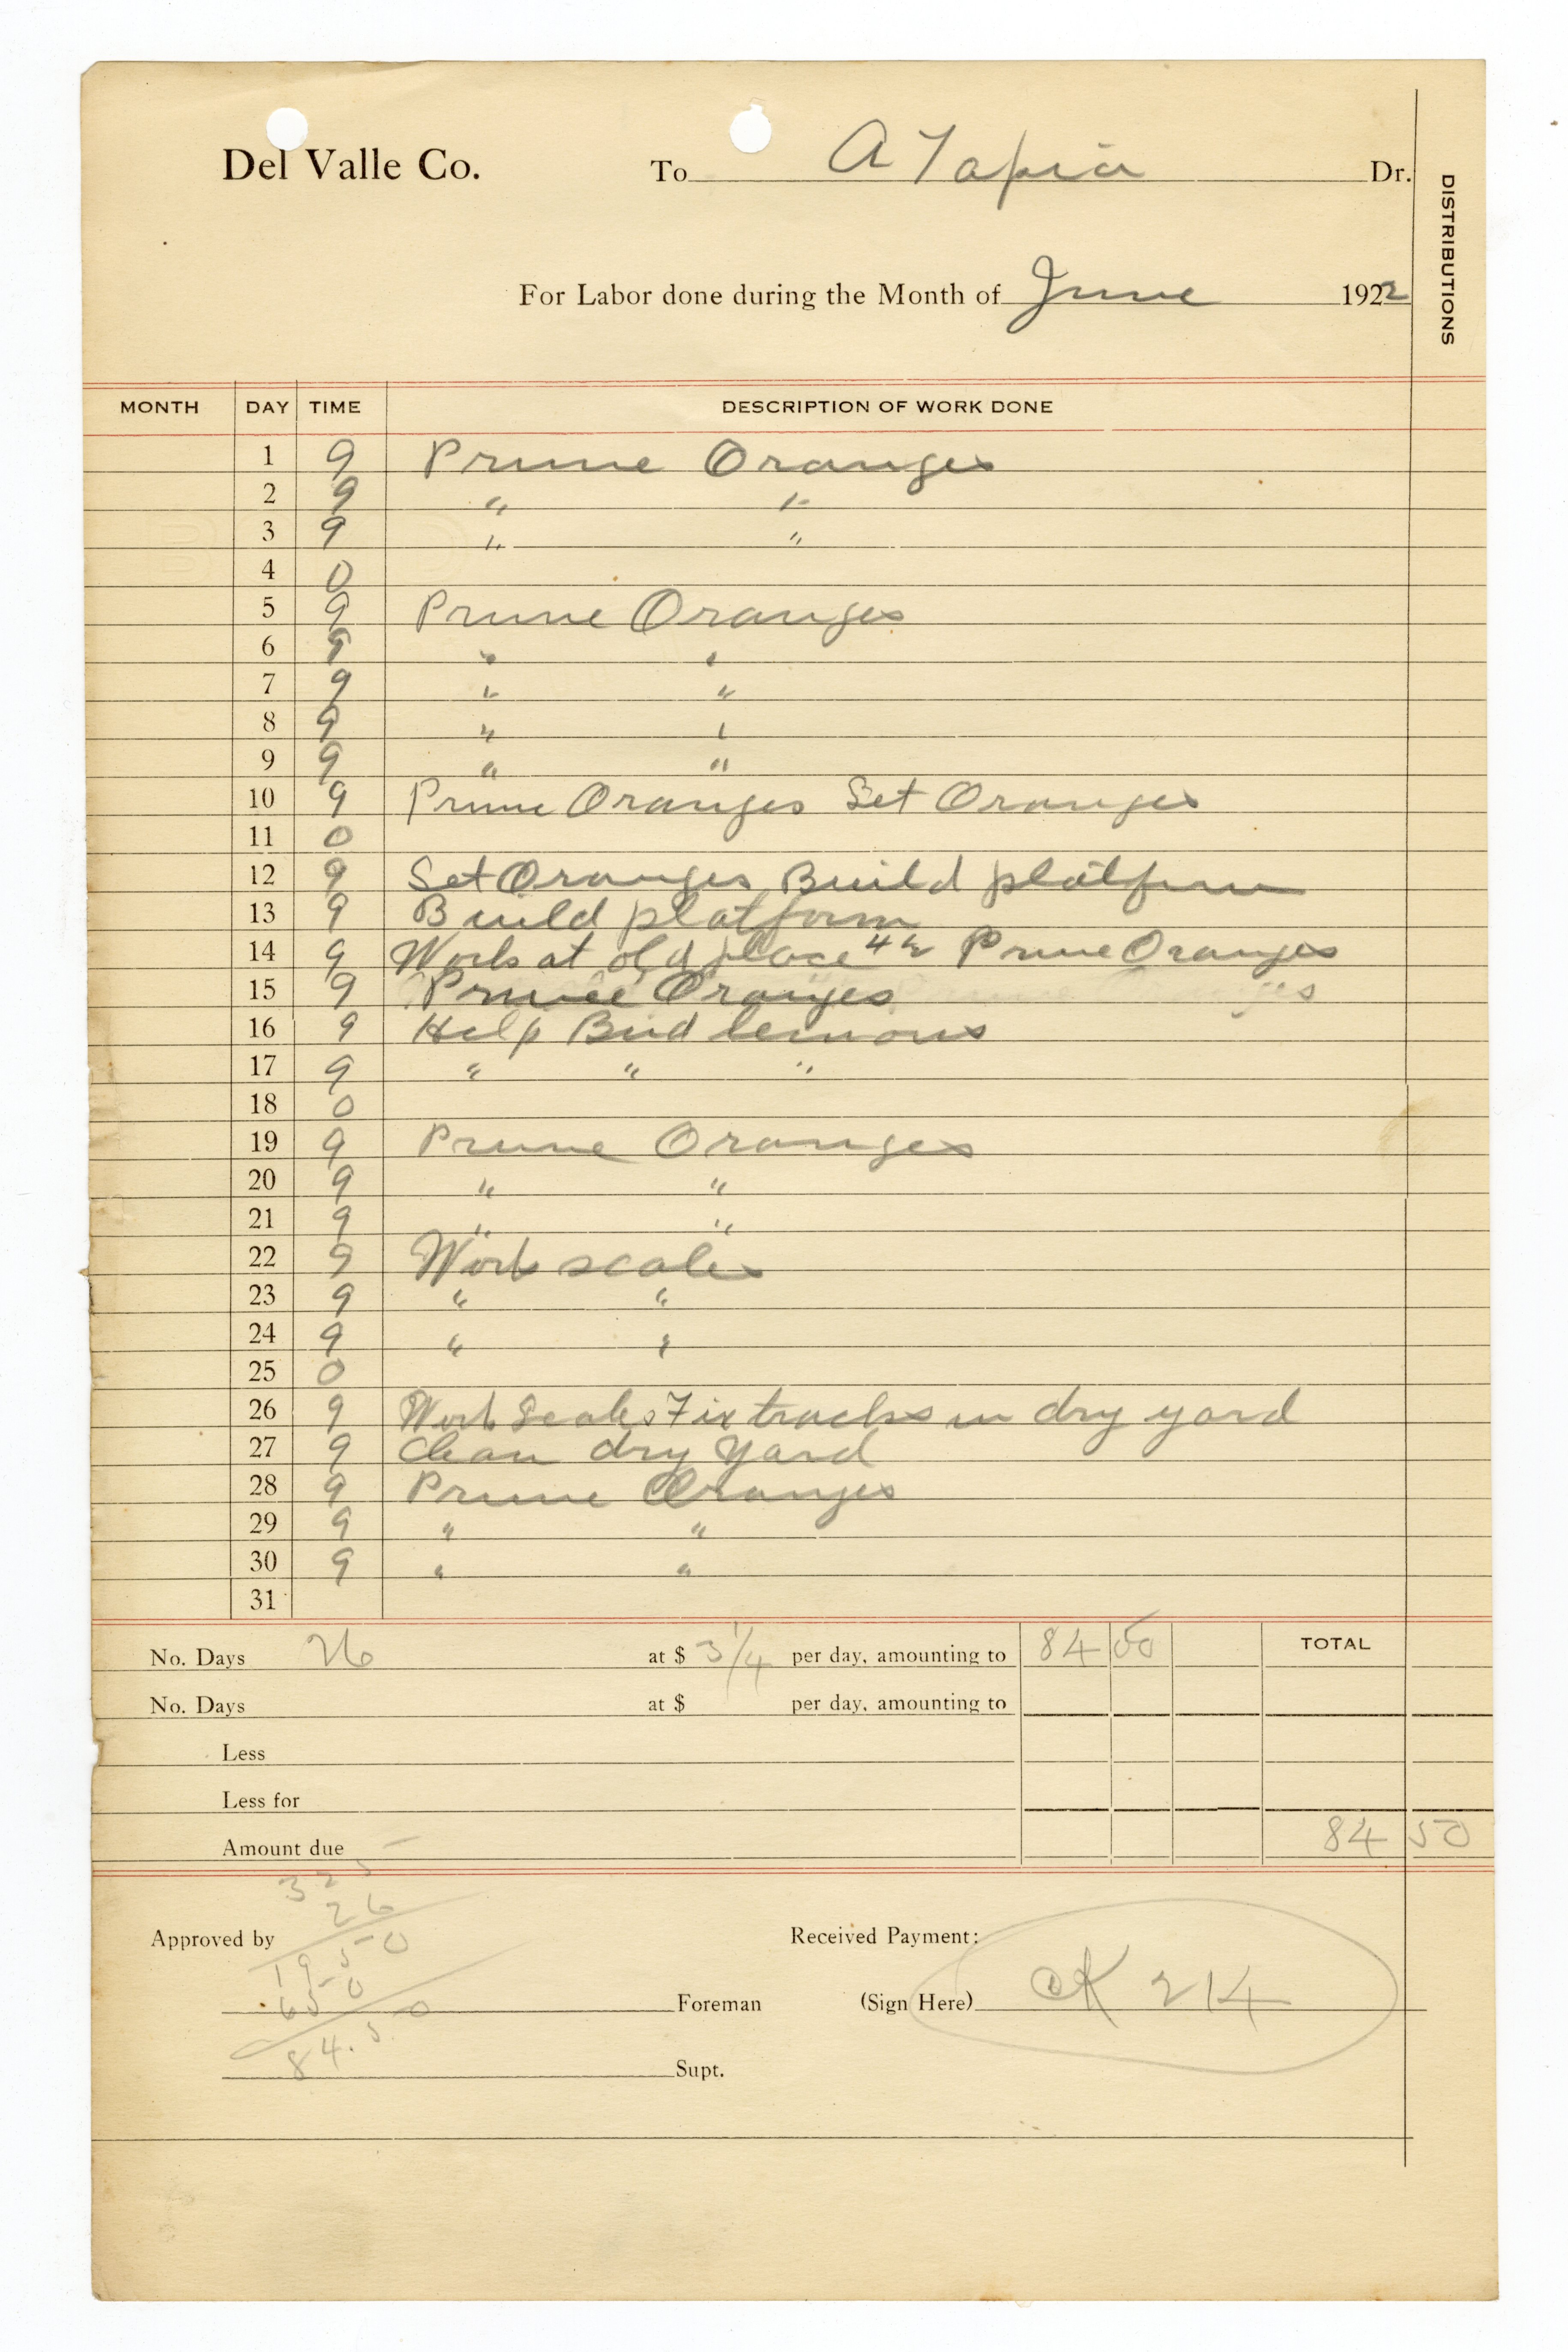 Del Valle Co. To A Tapia Dr.
DISTRIBUTIONS
For Labor done during the Month of June 1922
MONTH DAY TIME DESCRIPTION OF WORK DONE
1 9 Prune Oranges
2 9 " "
3 9 " "
4 0
5 9 Prune Oranges
6 9 " "
7 9 " "
8 9 " "
9 9 " "
10 9 Prune Oranges Set Oranges
11 0
12 9 Set Oranges Build platform
13 9 Build platform
14 9 Work at old place 4 h Prune Oranges
15 9 Prune Oranges
16 9 Help Bud lemons
17 9 " " "
18 0
19 9 Prune Oranges
20 9 " "
21 9 " "
22 9 Work scales
23 9 " "
24 9 " "
25 0
26 9 Work Scales Fix tracks in dry yard
27 9 Clean dry yard
28 9 Prune Oranges
29 9 " "
30 9 " "
31
No. Days 26 at $ 3 1/4 per day, amounting to 84 50 TOTAL
No. Days at $ per day, amounting to
Less
Less for
Amount due 84 50
325
26
Approved by 1950 Received Payment:
650 Foreman (Sign Here) CK 214
84.50
Supt.